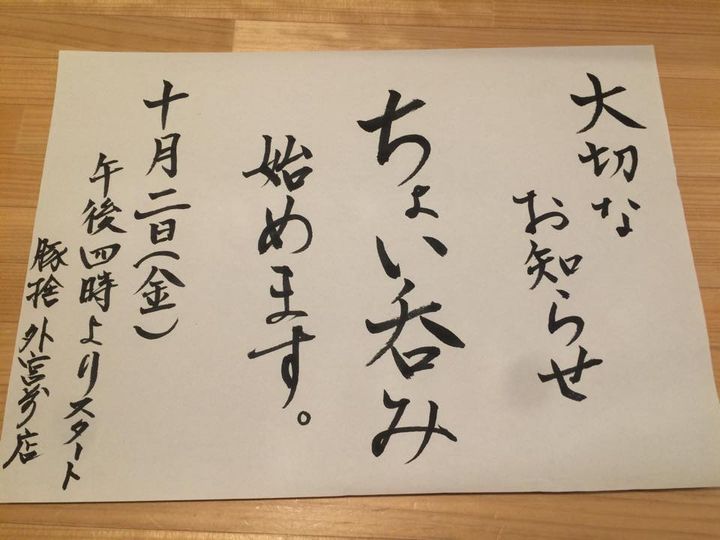 大切な
お知らせ
ちょい呑み
始めます。
十月二日(金)
午後四時よりスタート
豚捨 外宮前店